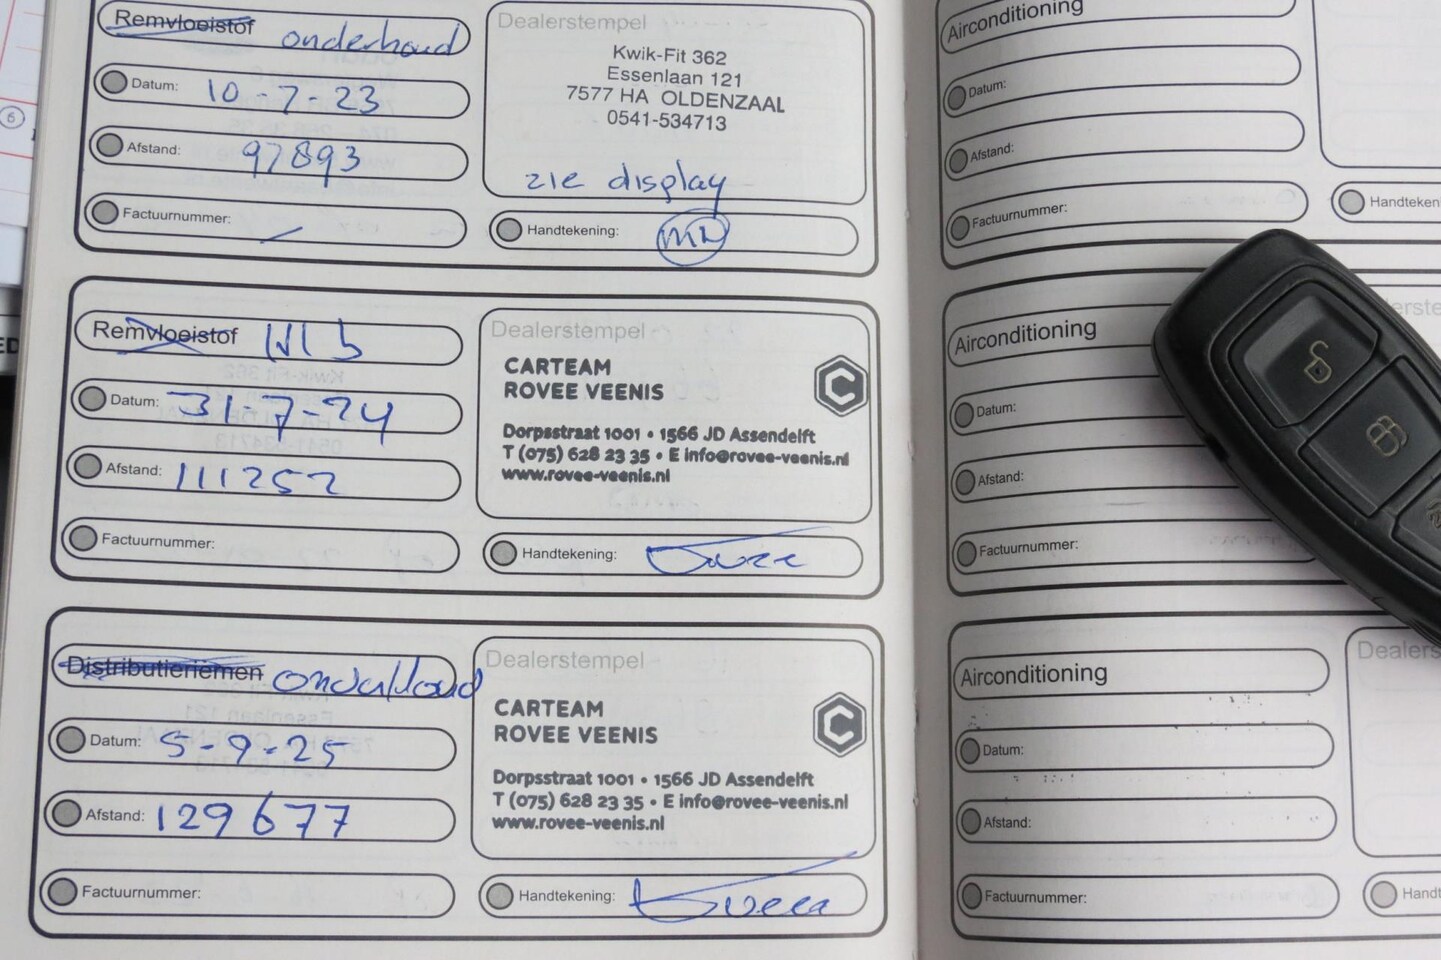 Remvloeistof onderhoud
Datum: 10-7-23
Afstand: 97893
Factuurnummer: —
Dealerstempel
Kwik-Fit 362
Essenlaan 121
7577 HA OLDENZAAL
0541-534713
zie display
Handtekening:
Remvloeistof
Datum: 31-7-24
Afstand: 111252
Factuurnummer:
Dealerstempel
CARTEAM
ROVEE VEENIS
Dorpsstraat 1001 • 1566 JD Assendelft
T (075) 628 23 35 • E info@rovee-veenis.nl
www.rovee-veenis.nl
Handtekening:
Distributieriemen onderhoud
Datum: 5-9-25
Afstand: 129677
Factuurnummer:
Dealerstempel
CARTEAM
ROVEE VEENIS
Dorpsstraat 1001 • 1566 JD Assendelft
T (075) 628 23 35 • E info@rovee-veenis.nl
www.rovee-veenis.nl
Handtekening:
Airconditioning
Datum:
Afstand:
Factuurnummer:
Handteken
Airconditioning
Datum:
Afstand:
Factuurnummer:
Airconditioning
Datum:
Afstand:
Factuurnummer:
Dealers
Handt